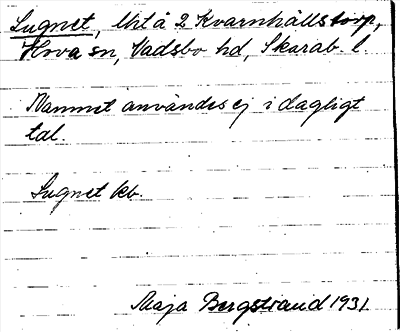 Lugnet, lht å 2 Kvarnhållstorp,
Hova sn, Vadsbo hd, Skarab. l.
Namnet användes ej i dagligt
tal.
Lugnet kb.
Maja Bergstrand 1931